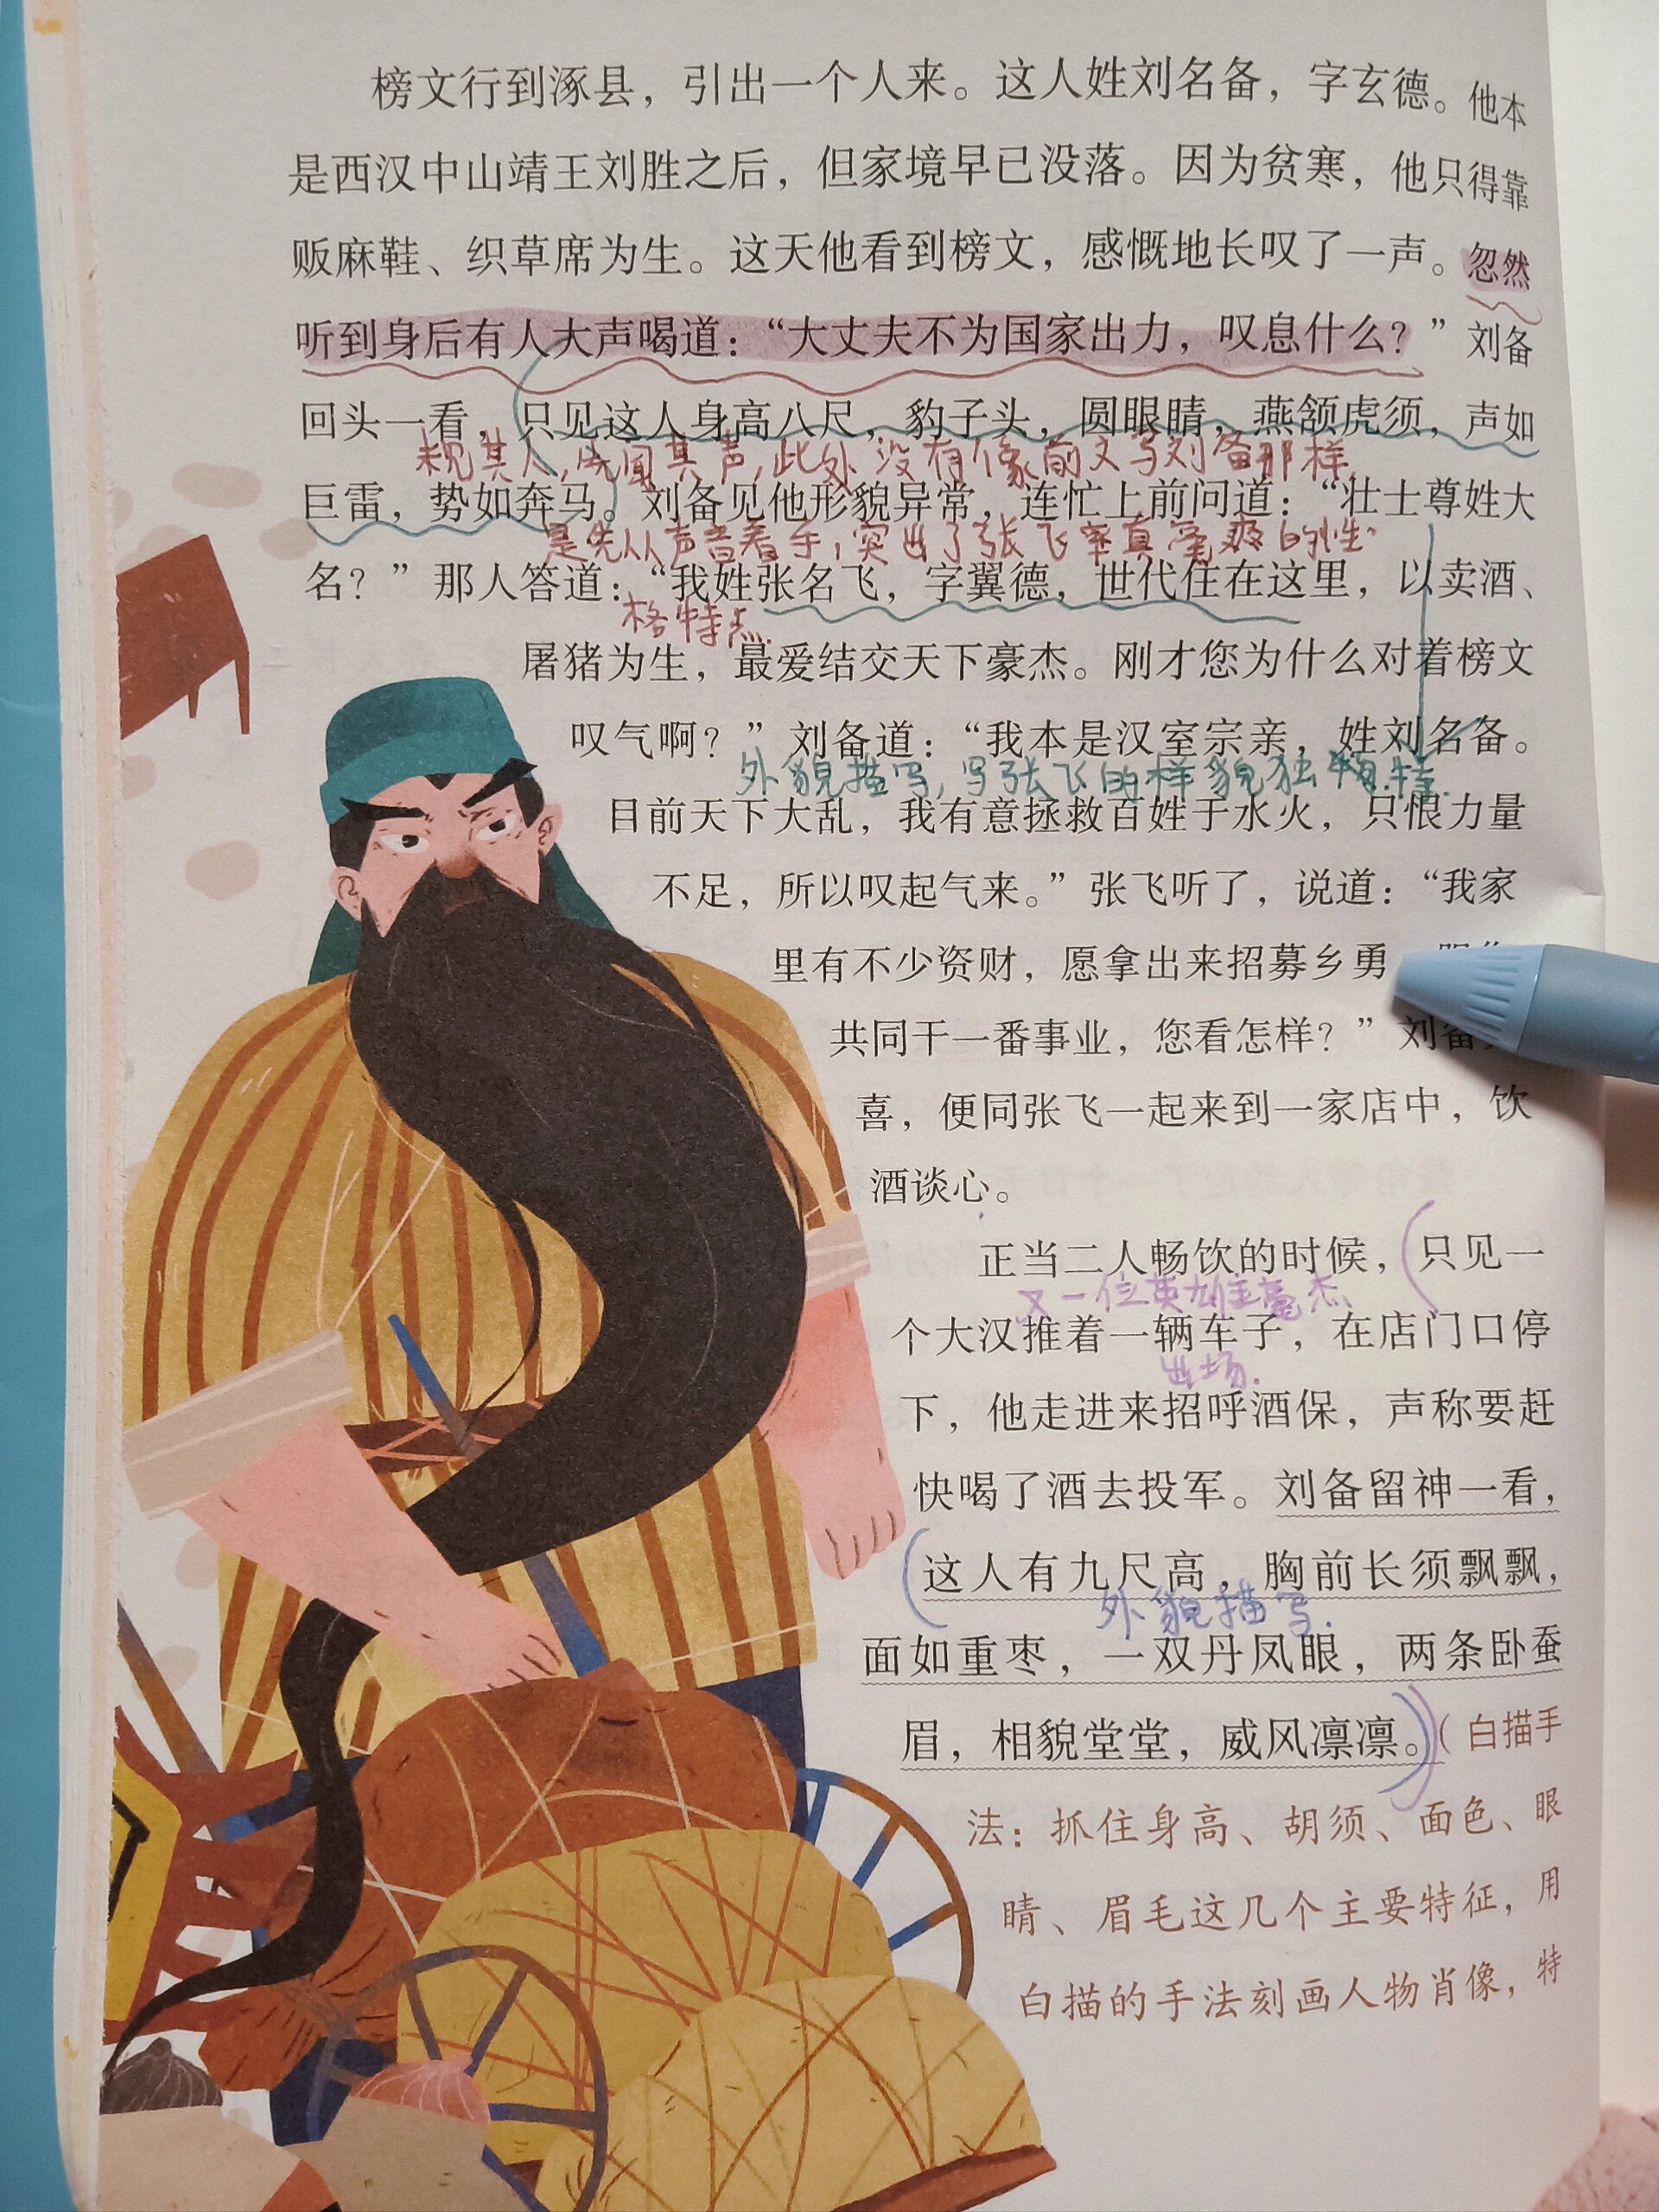 榜文行到涿县，引出一个人来。这人姓刘名备，字玄德。他本
是西汉中山靖王刘胜之后，但家境早已没落。因为贫寒，他只得靠
贩麻鞋、织草席为生。这天他看到榜文，感慨地长叹了一声。忽然
听到身后有人大声喝道：“大丈夫不为国家出力，叹息什么？”刘备
回头一看，只见这人身高八尺，豹子头，圆眼睛，燕颔虎须，声如
未见其人，先闻其声，此处没有像前文写刘备那样，
巨雷，势如奔马。刘备见他形貌异常，连忙上前问道：“壮士尊姓大
是先从声音着手，突出了张飞率真豪爽的性
名？”那人答道：“我姓张名飞，字翼德，世代住在这里，以卖酒、
格特点.
屠猪为生，最爱结交天下豪杰。刚才您为什么对着榜文
叹气啊？”刘备道：“我本是汉室宗亲，姓刘名备。
外貌描写，写张飞的样貌独特.
目前天下大乱，我有意拯救百姓于水火，只恨力量
不足，所以叹起气来。”张飞听了，说道：“我家
里有不少资财，愿拿出来招募乡勇
共同干一番事业，您看怎样？”刘备
喜，便同张飞一起来到一家店中，饮
酒谈心。
正当二人畅饮的时候，只见一
又一位英雄豪杰
个大汉推着一辆车子，在店门口停
出场.
下，他走进来招呼酒保，声称要赶
快喝了酒去投军。刘备留神一看，
这人有九尺高，胸前长须飘飘，
外貌描写.
面如重枣，一双丹凤眼，两条卧蚕
眉，相貌堂堂，威风凛凛。（白描手
法：抓住身高、胡须、面色、眼
睛、眉毛这几个主要特征，用
白描的手法刻画人物肖像，特